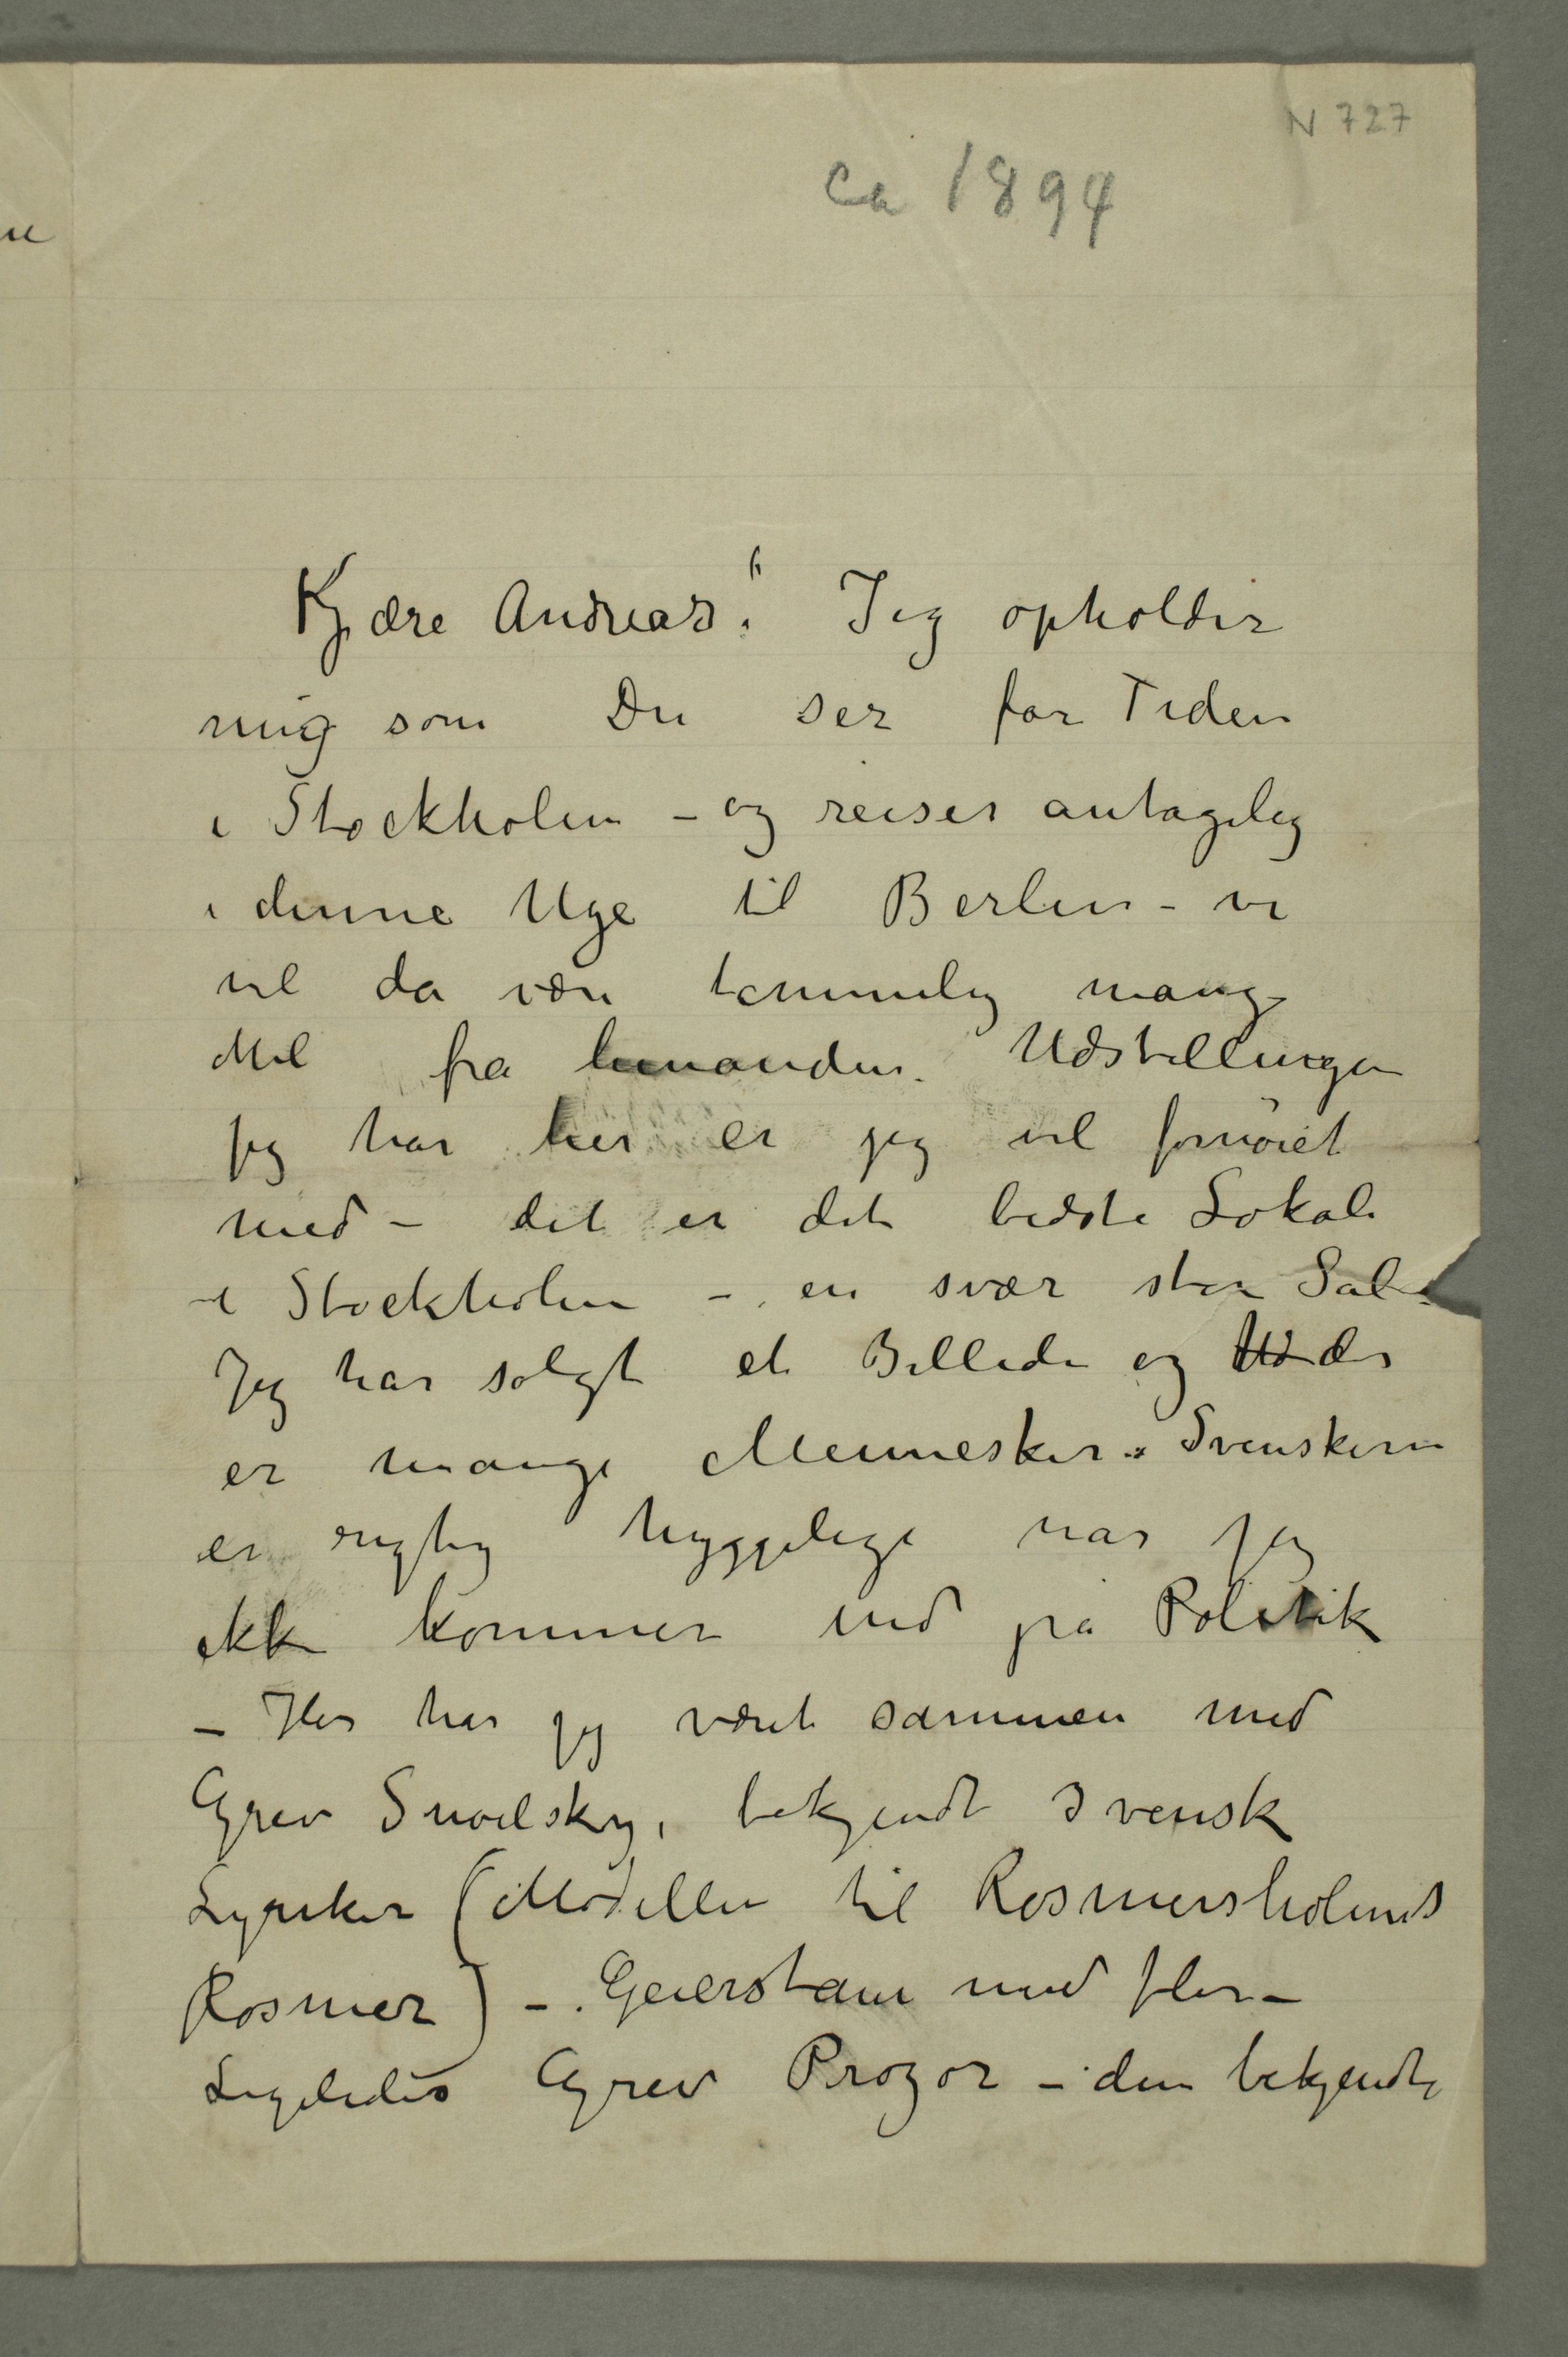 N 727
ca 1894
Kjære Andreas! Jeg opholder
mig som Du ser for Tiden
i Stockholm – og reiser antagelig
i denne Uge til Berlin – vi
vil da være temmelig mange
Mil fra hinanden. Udstillingen
jeg har her er jeg vel fornøiet
med – det er det bedste Lokale
i Stockholm – en svær stor Sal.
Jeg har solgt et Billede og der
er mange Mennesker. Svenskerne
er rigtig hyggelige nar jeg
ikke kommer ind på Politik
– Her har jeg været sammen med
Grev Snoilsky, bekjendt svensk
Lyriker (Modellen til Rosmersholms
Rosmer) – Geierstam med flere –
Ligeledes Grev Prozor – den bekjendte